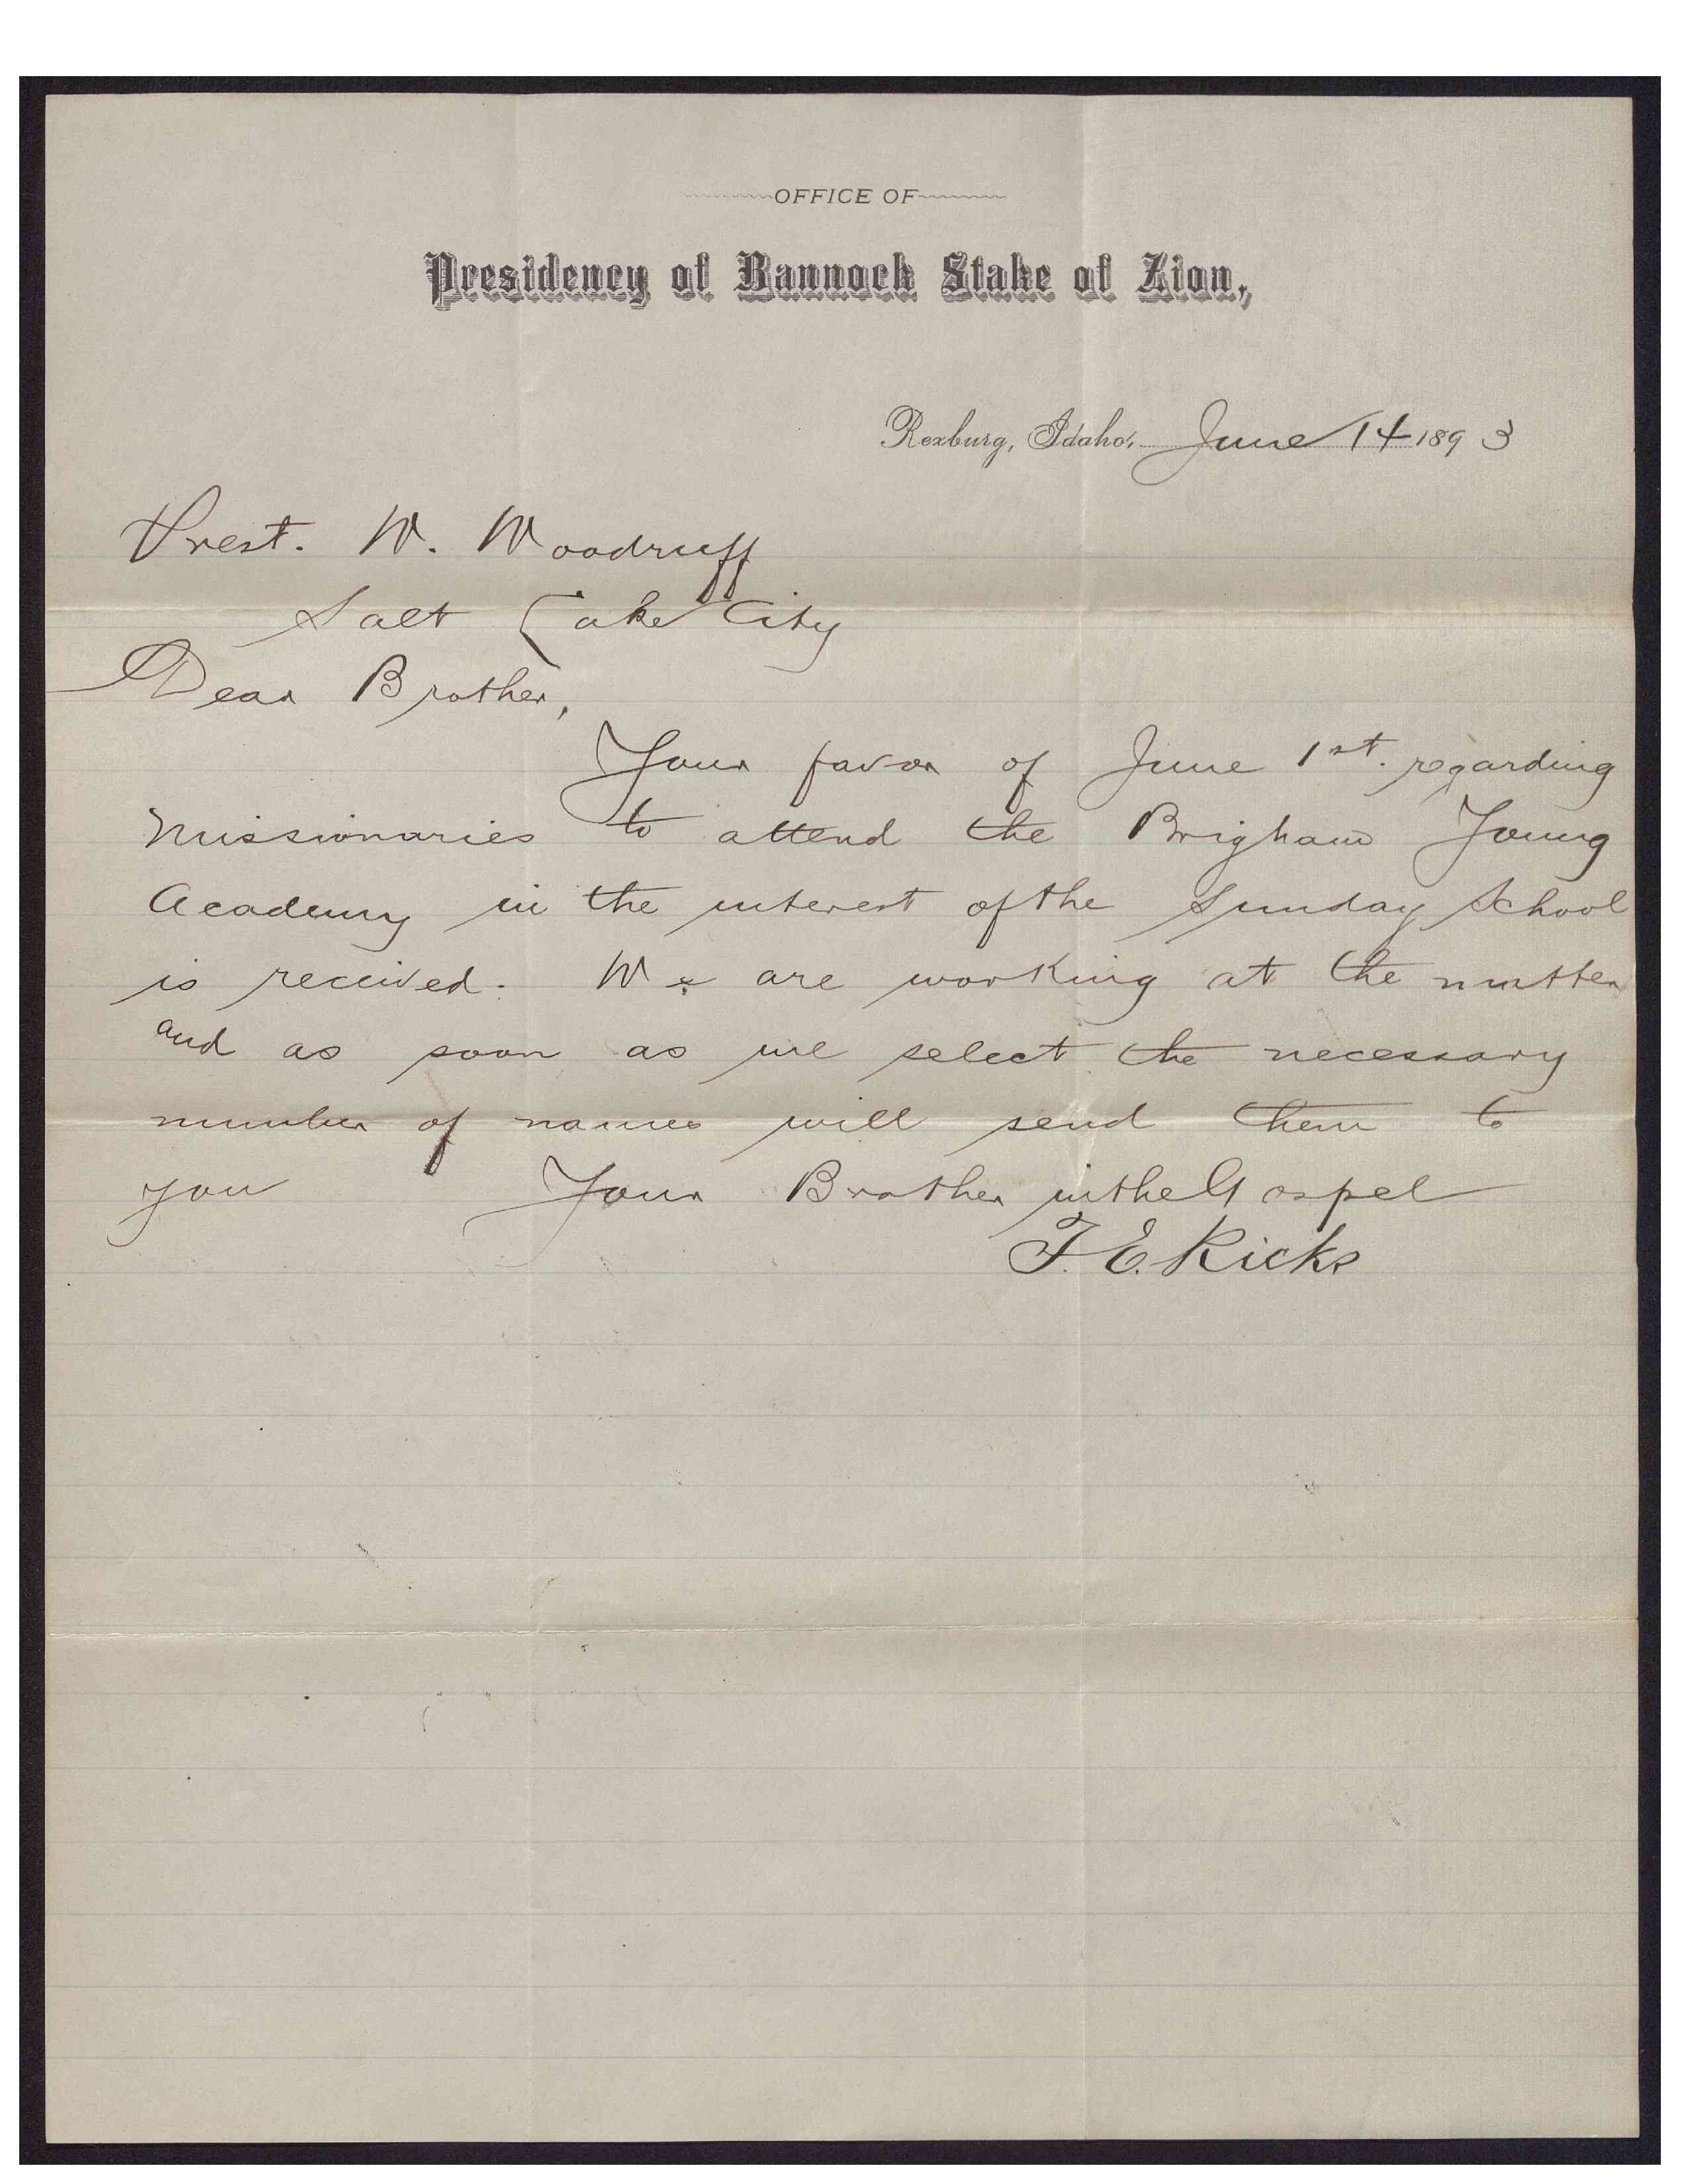 OFFICE OF
Presidency of Bannock Stake of Zion,
Rexburg, Idaho, June 14 1893
Prest. W. Woodruff
Salt Lake City
Dear Brother,
Your favor of June 1st. regarding
missionaries to attend the Brigham Young
Academy in the interest of the Sunday School
is received. We are working at the matter
and as soon as we select the necessary
number of names will send them to
you Your Brother in the Gospel
T. E. Ricks